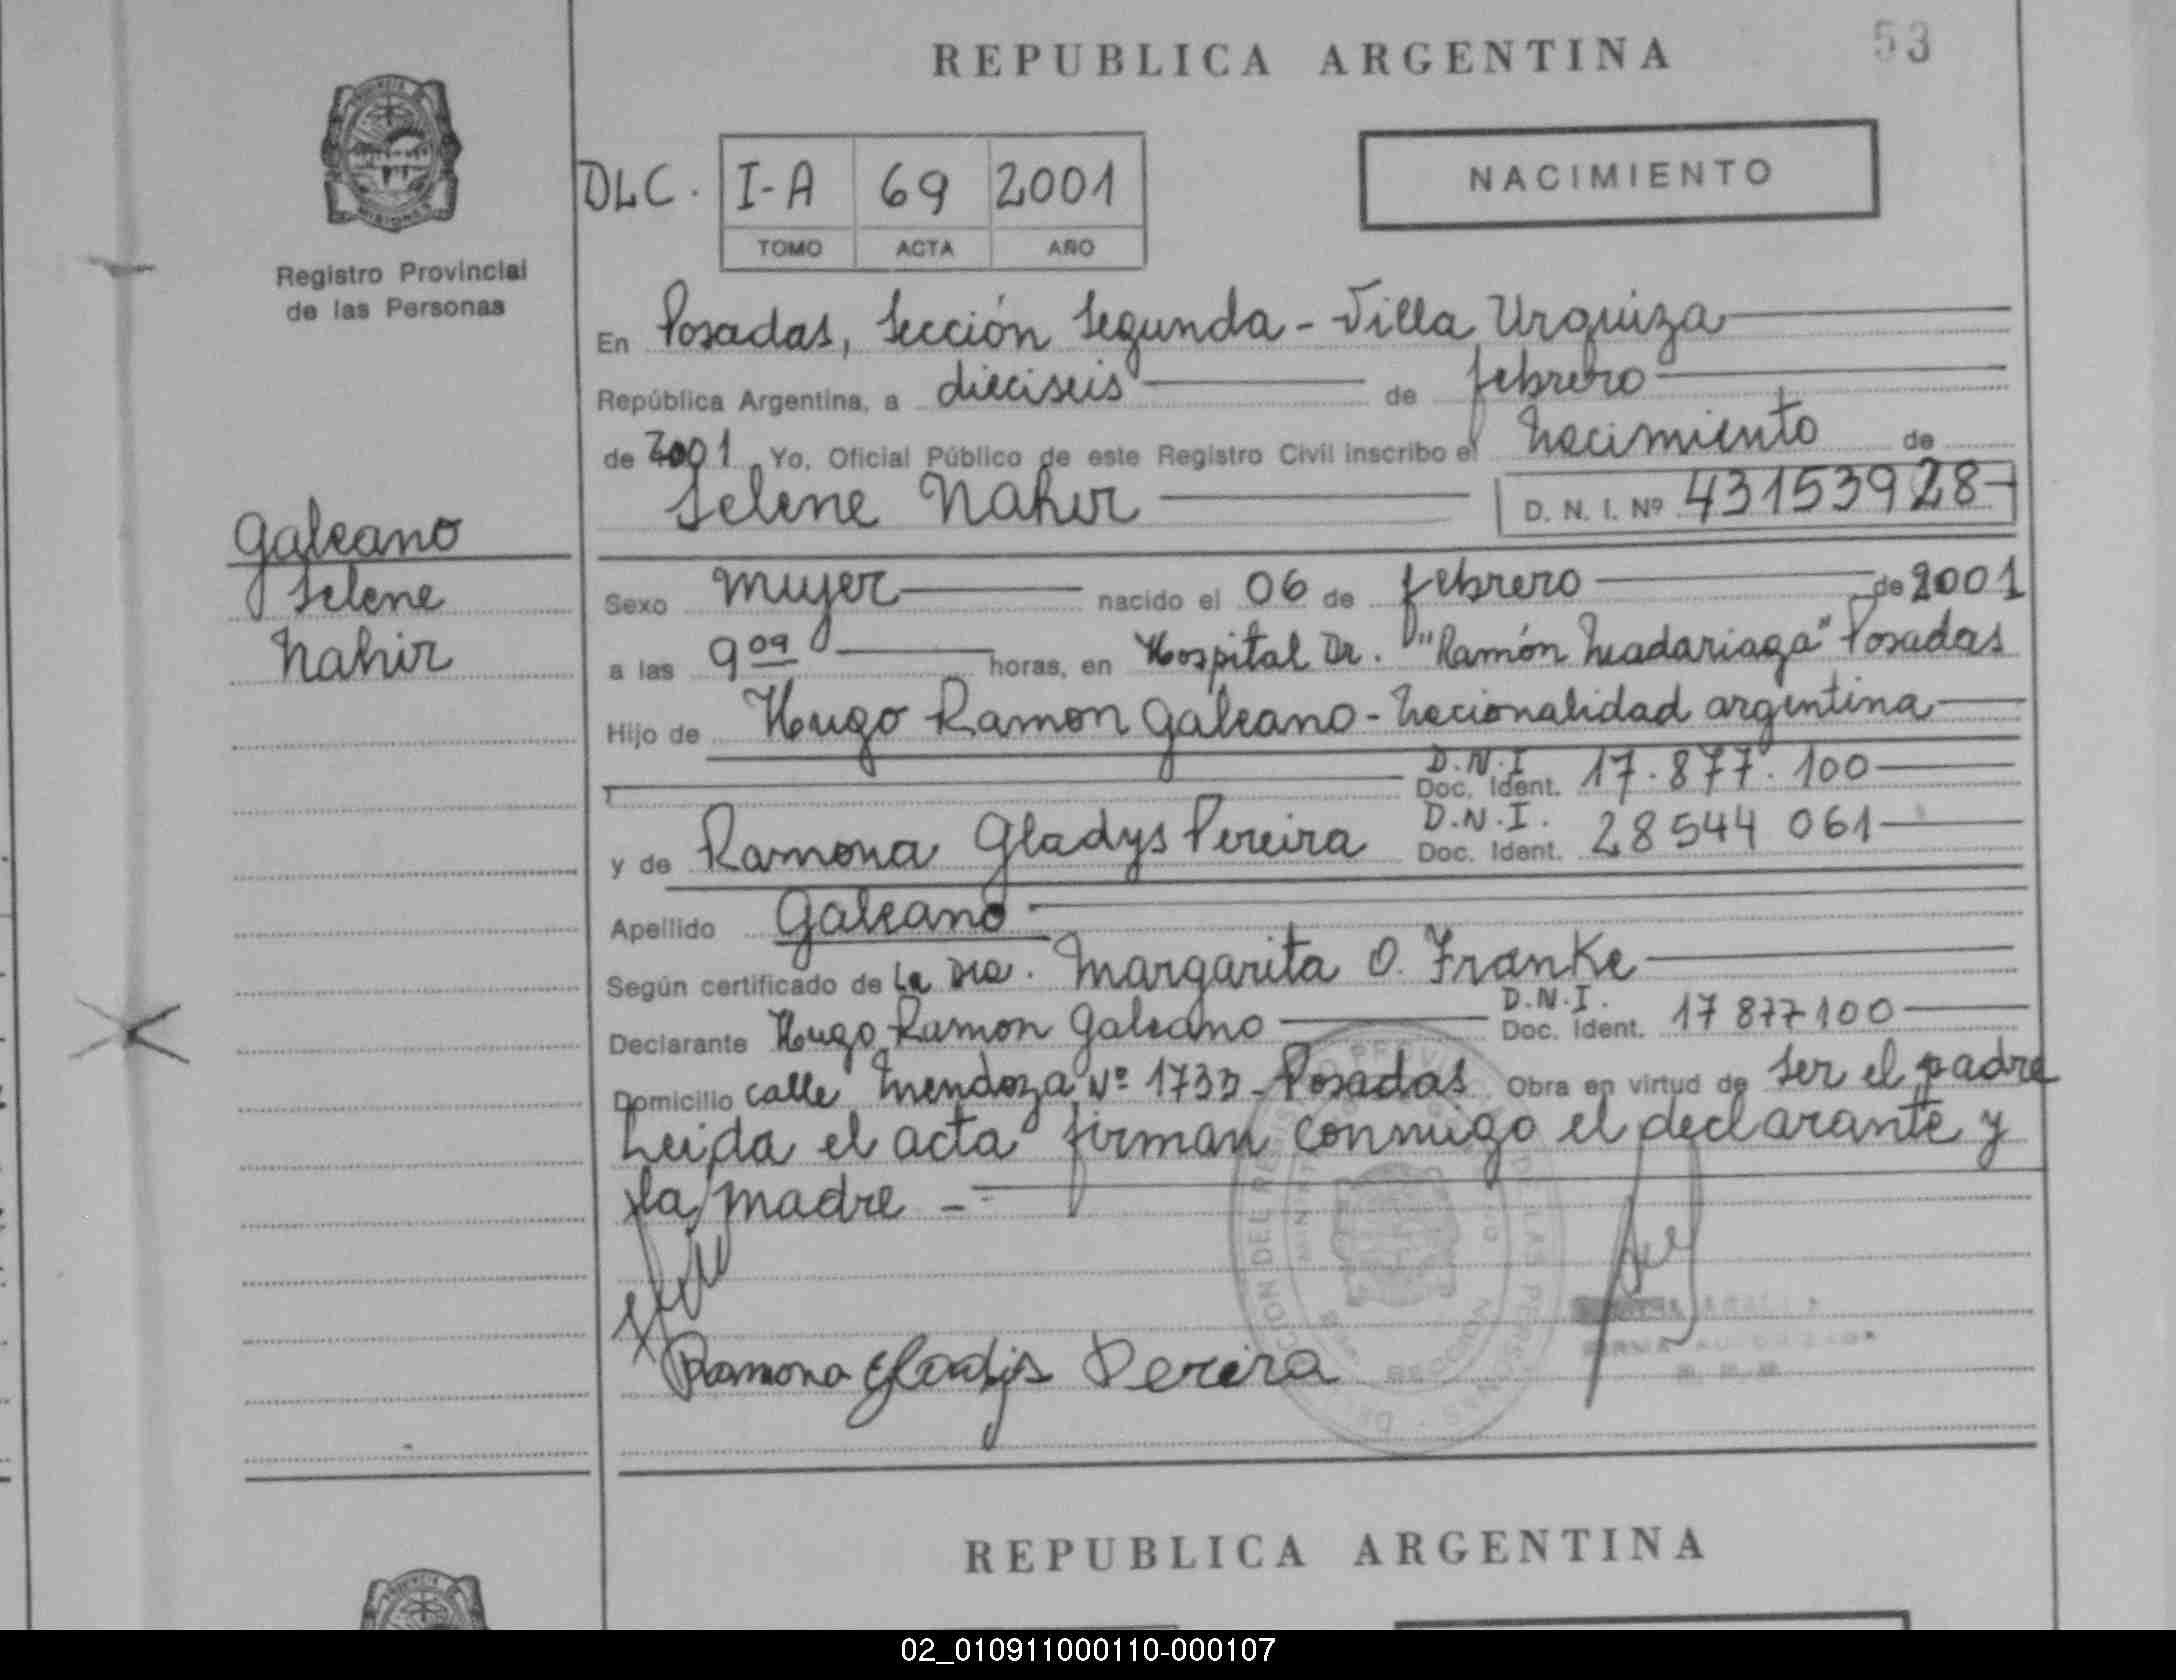 REPUBLICA ARGENTINA
53
PROVINCIA DE
MISIONES
Registro Provincial
de las Personas
DLC. I-A 69 2001
TOMO ACTA AÑO
NACIMIENTO
En Posadas, Sección Segunda - Villa Urquiza
República Argentina, a dieciseis de febrero
de 2001 Yo, Oficial Público de este Registro Civil inscribo el Nacimiento de
Selene Nahir D. N. I. Nº 43153928
Galeano
Selene
Nahir
Sexo mujer nacido el 06 de febrero de 2001
a las 9 09 horas, en Hospital Dr. "Ramón Madariaga" Posadas
Hijo de Hugo Ramon Galeano - Nacionalidad argentina
D.N.I
Doc. Ident. 17.877.100
D.N.I.
y de Ramona Gladys Pereira Doc. Ident. 28544 061
Apellido Galeano
Según certificado de La Dra. Margarita O. Franke
D.N.I.
Declarante Hugo Ramon Galeano Doc. Ident. 17 877100
Domicilio calle Mendoza Nº 1733 - Posadas Obra en virtud de ser el padre
Leida el acta firman conmigo el declarante y
la madre -
Ramona Gladis Pereira
REPUBLICA ARGENTINA
02_010911000110-000107